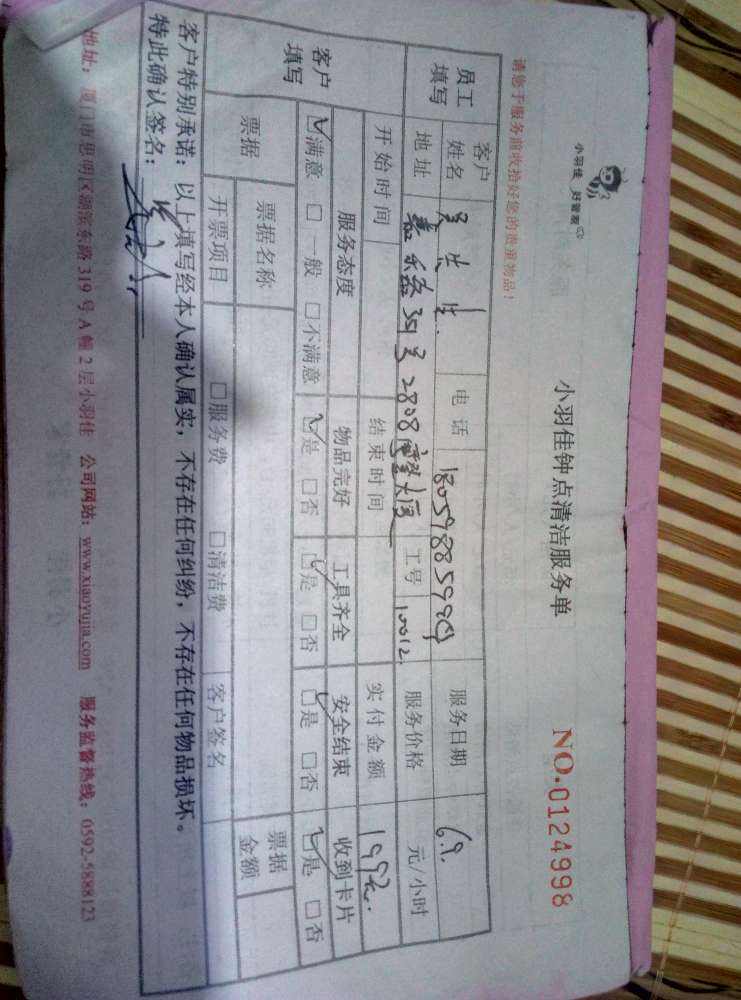 小羽佳 好管家
小羽佳钟点清洁服务单
NO.0124998
请您于服务前收拾好您的贵重物品!
员工填写 客户姓名 吴先生. 电话 18059885990 服务日期 6.9.
地址 2808 工号 10012. 服务价格 元/小时
客户填写 开始时间 结束时间 实付金额
服务态度 物品完好 工具齐全 安全结束 收到卡片
☑满意 □一般 □不满意 ☑是 □否 ☑是 □否 ☑是 □否 ☑是 □否
票据 票据名称 票据金额
开票项目 □服务费 □清洁费 客户签名
客户特别承诺:以上填写经本人确认属实,不存在任何纠纷,不存在任何物品损坏。
特此确认签名:
地址:厦门市思明区湖滨东路 319 号 A 幢 2 层小羽佳 公司网站:www.xiaoyujia.com 服务监督热线:0592-5888123